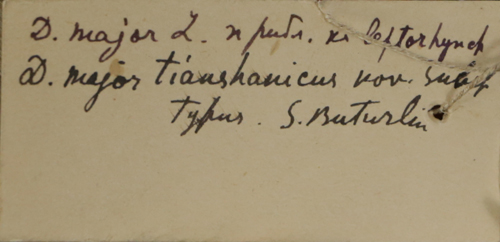 D. major L. прибл. к leptorhynch
D. major tianshanicus nov. sub
Typus. S. Buturlin